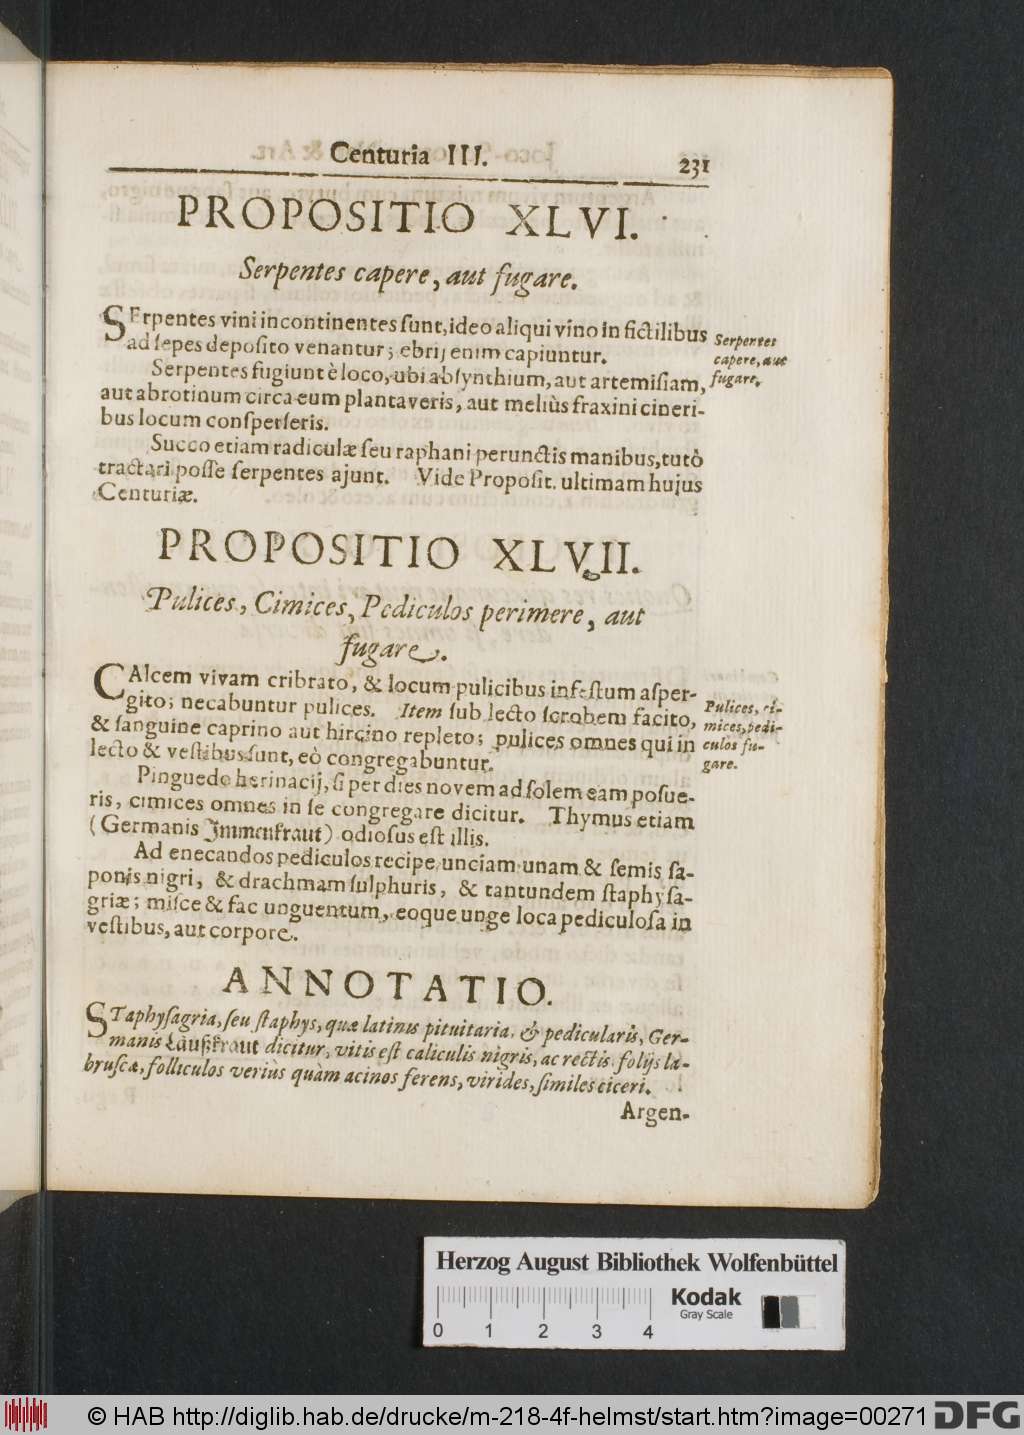 Centuria III. 231
PROPOSITIO XLVI.
Serpentes capere, aut fugare.
SErpentes vini incontinentes sunt, ideo aliqui vino in fictilibus
ad sepes deposito venantur; ebrij enim capiuntur.
Serpentes fugiunt è loco, ubi absynthium, aut artemisiam,
aut abrotinum circa eum plantaveris, aut meliùs fraxini cineri-
bus locum consperseris.
Succo etiam radiculæ seu raphani perunctis manibus, tutò
tractari posse serpentes ajunt. Vide Proposit. ultimam hujus
Centuriæ.
Serpentes
capere, aut
fugare.
PROPOSITIO XLVII.
Pulices, Cimices, Pediculos perimere, aut
fugare.
CAlcem vivam cribrato, & locum pulicibus infestum asper-
gito; necabuntur pulices. Item sub lecto scrobem facito,
& sanguine caprino aut hircino repleto; pulices omnes qui in
lecto & vestibus sunt, eò congregabuntur.
Pinguedo herinacij, si per dies novem ad solem eam posue-
ris, cimices omnes in se congregare dicitur. Thymus etiam
(Germanis Immenkraut) odiosus est illis.
Ad enecandos pediculos recipe unciam unam & semis sa-
ponis nigri, & drachmam sulphuris, & tantundem staphysa-
griæ; misce & fac unguentum, eoque unge loca pediculosa in
vestibus, aut corpore.
Pulices, ci-
mices, pedi-
culos fu-
gare.
ANNOTATIO.
STaphysagria, seu staphys, quæ latinis pituitaria, & pedicularis, Ger-
manis Läußkraut dicitur, vitis est caliculis nigris, ac rectis, folijs la-
bruscæ, folliculos veriùs quàm acinos ferens, virides, similes ciceri.
Argen-
Herzog August Bibliothek Wolfenbüttel
Kodak
Gray Scale
0 1 2 3 4
© HAB http://diglib.hab.de/drucke/m-218-4f-helmst/start.htm?image=00271 DFG